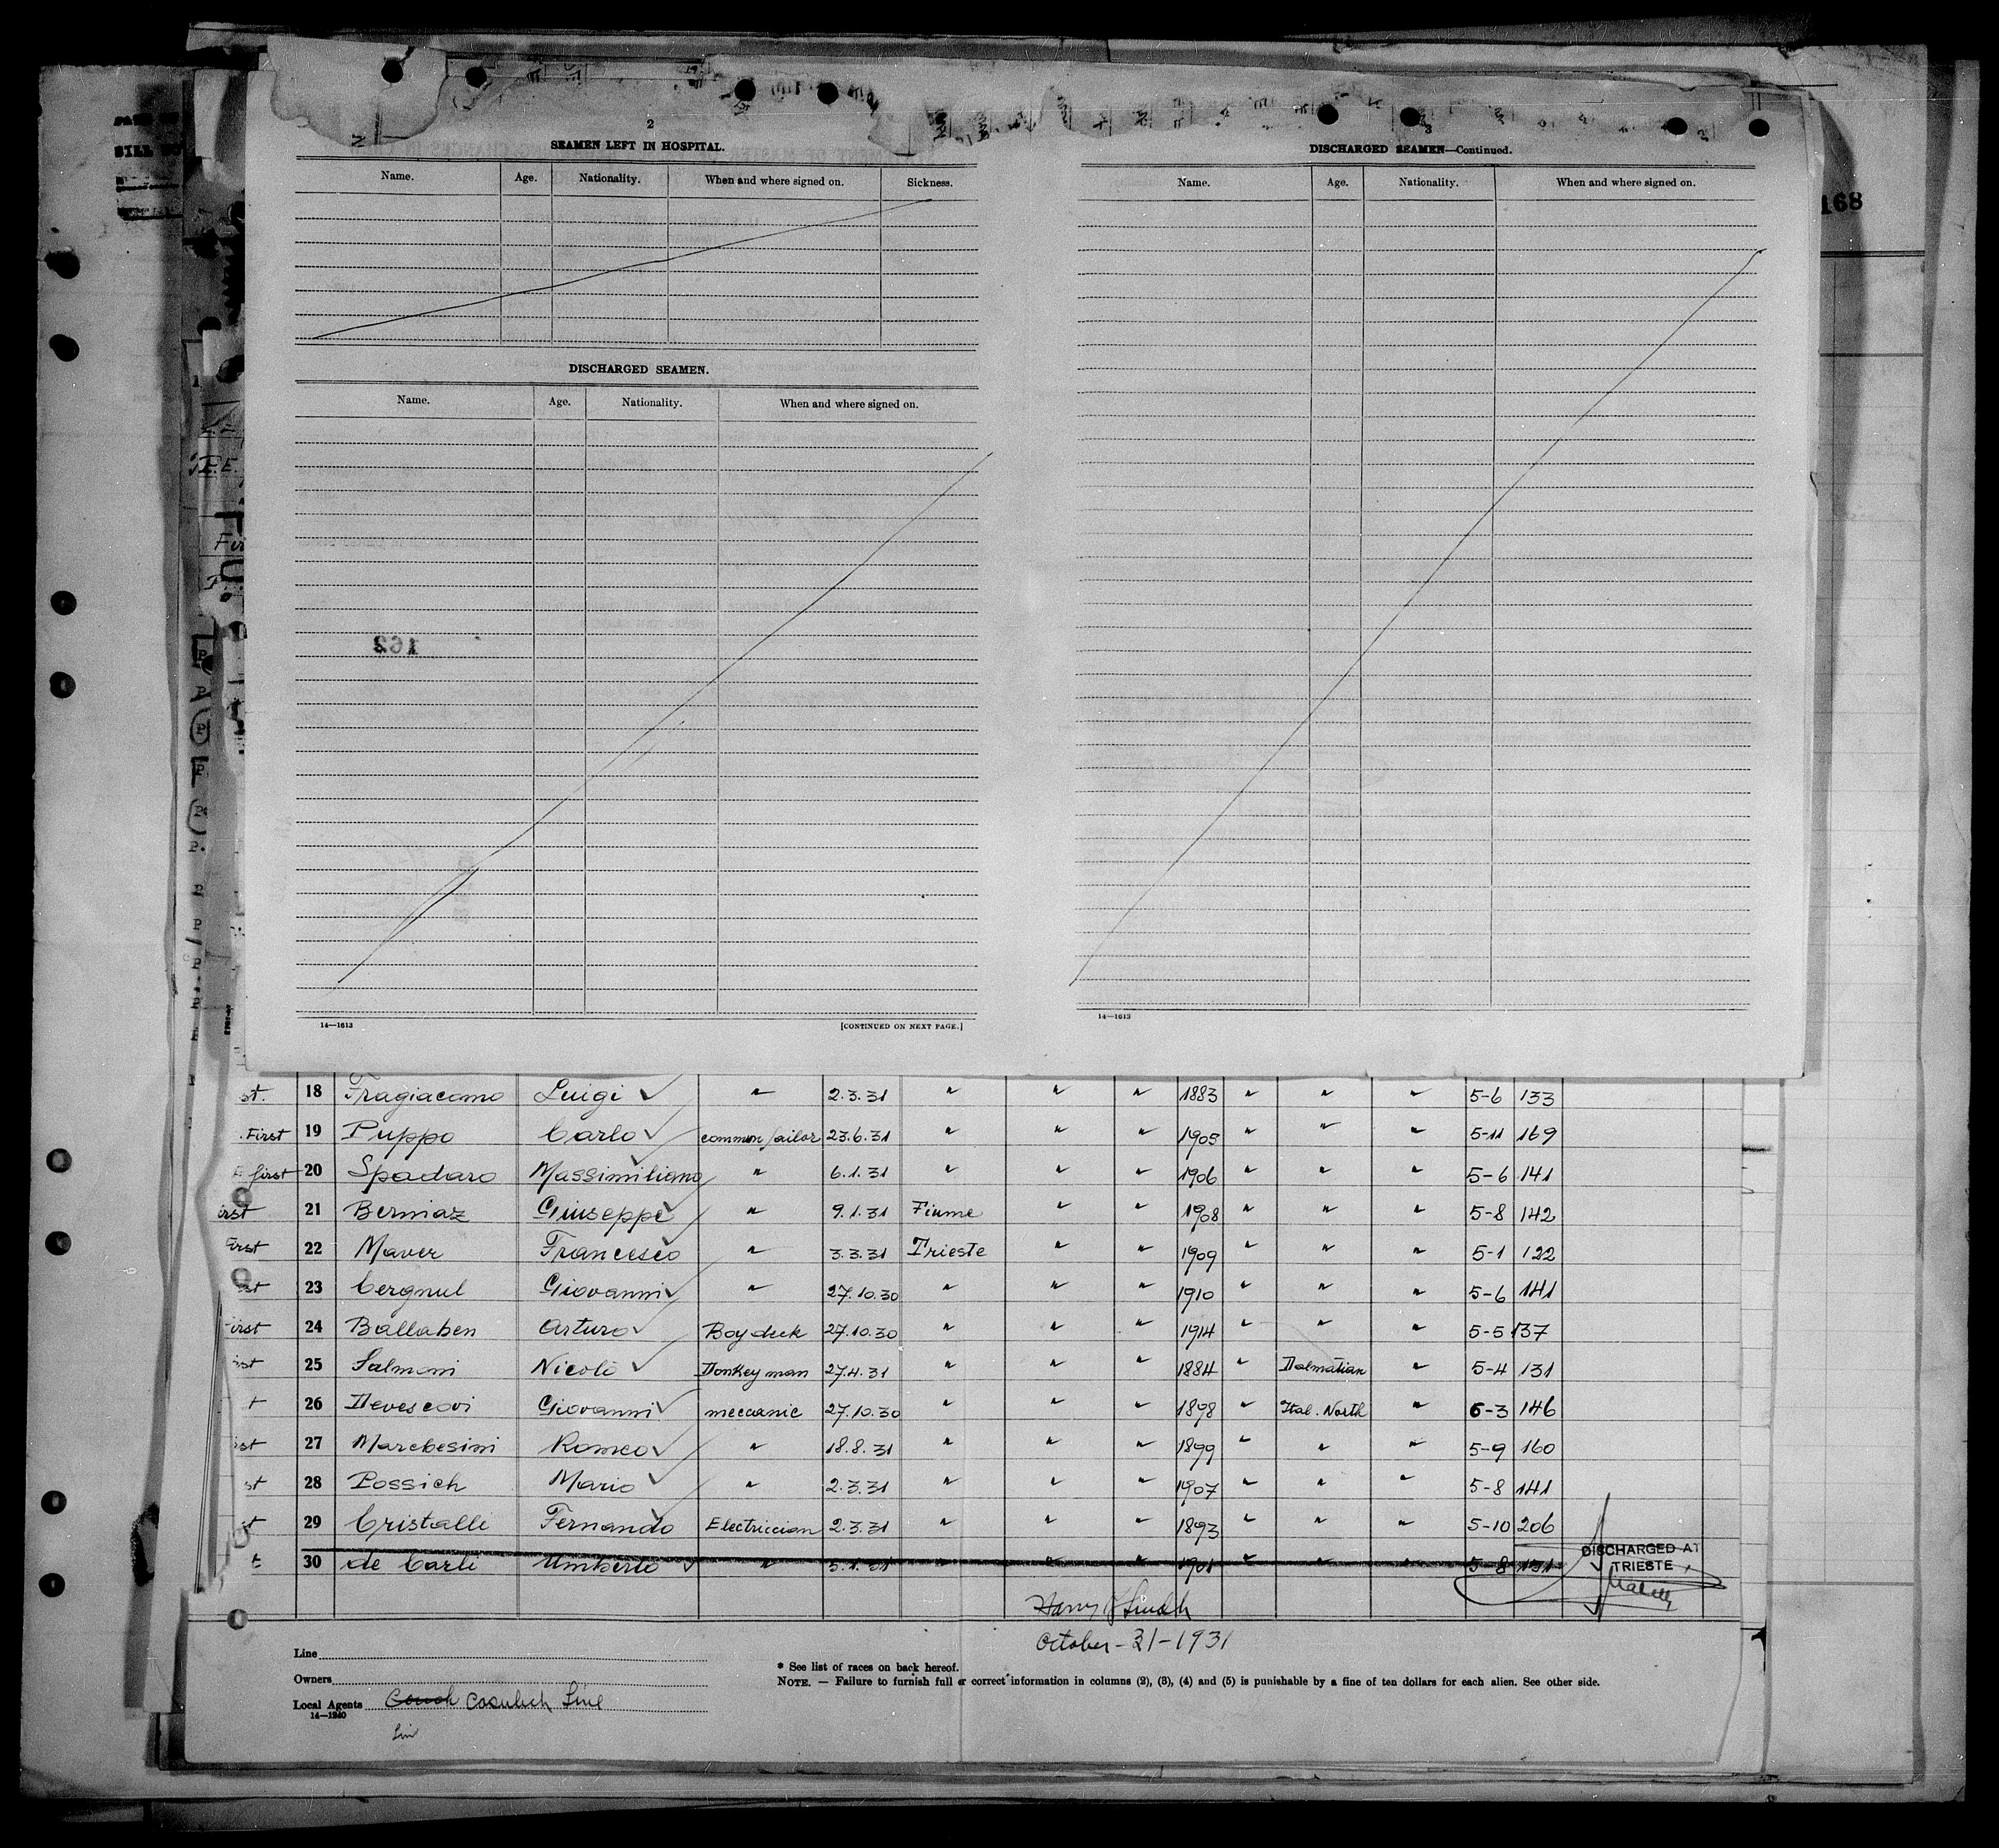 2
SEAMEN LEFT IN HOSPITAL.
Name. Age. Nationality. When and where signed on. Sickness.
DISCHARGED SEAMEN.
Name. Age. Nationality. When and where signed on.
162
14—1613 [CONTINUED ON NEXT PAGE.]
3
DISCHARGED SEAMEN—Continued.
Name. Age. Nationality. When and where signed on.
14—1613
168
st. 18 Fragiacomo Luigi ✓ " 2.3.31 " " " 1883 " " " 5-6 133
First 19 Puppo Carlo ✓ common sailor 23.6.31 " " " 1905 " " " 5-11 169
first 20 Spadaro Massimiliano " 6.1.31 " " " 1906 " " " 5-6 141
irst 21 Bernaz Giuseppe ✓ " 9.1.31 Fiume " " 1908 " " " 5-8 142
First 22 Maver Francesco " 3.3.31 Trieste " " 1909 " " " 5-1 122
st 23 Cergnul Giovanni ✓ " 27.10.30 " " " 1910 " " " 5-6 141
First 24 Ballaben Arturo ✓ Boy deck 27.10.30 " " " 1914 " " " 5-5 137
st 25 Salmoni Nicolò ✓ Donkey man 27.4.31 " " " 1884 " Dalmatian " 5-4 131
t 26 Devescovi Giovanni ✓ meccanic 27.10.30 " " " 1898 " Ital. North " 6-3 146
st 27 Marchesini Romeo ✓ " 18.8.31 " " " 1899 " " " 5-9 160
st 28 Possich Mario ✓ " 2.3.31 " " " 1907 " " " 5-8 141
st 29 Cristalli Fernando ✓ Electriccian 2.3.31 " " " 1893 " " " 5-10 206
t 30 de Carli Umberto ✓ " 5.1.31 " " " 1901 " " " 5-8 151
DISCHARGED AT
TRIESTE
Harry
October-31-1931
Line
Owners
Local Agents Cosulich Line
14—1240
* See list of races on back hereof.
NOTE. — Failure to furnish full or correct information in columns (2), (3), (4) and (5) is punishable by a fine of ten dollars for each alien. See other side.